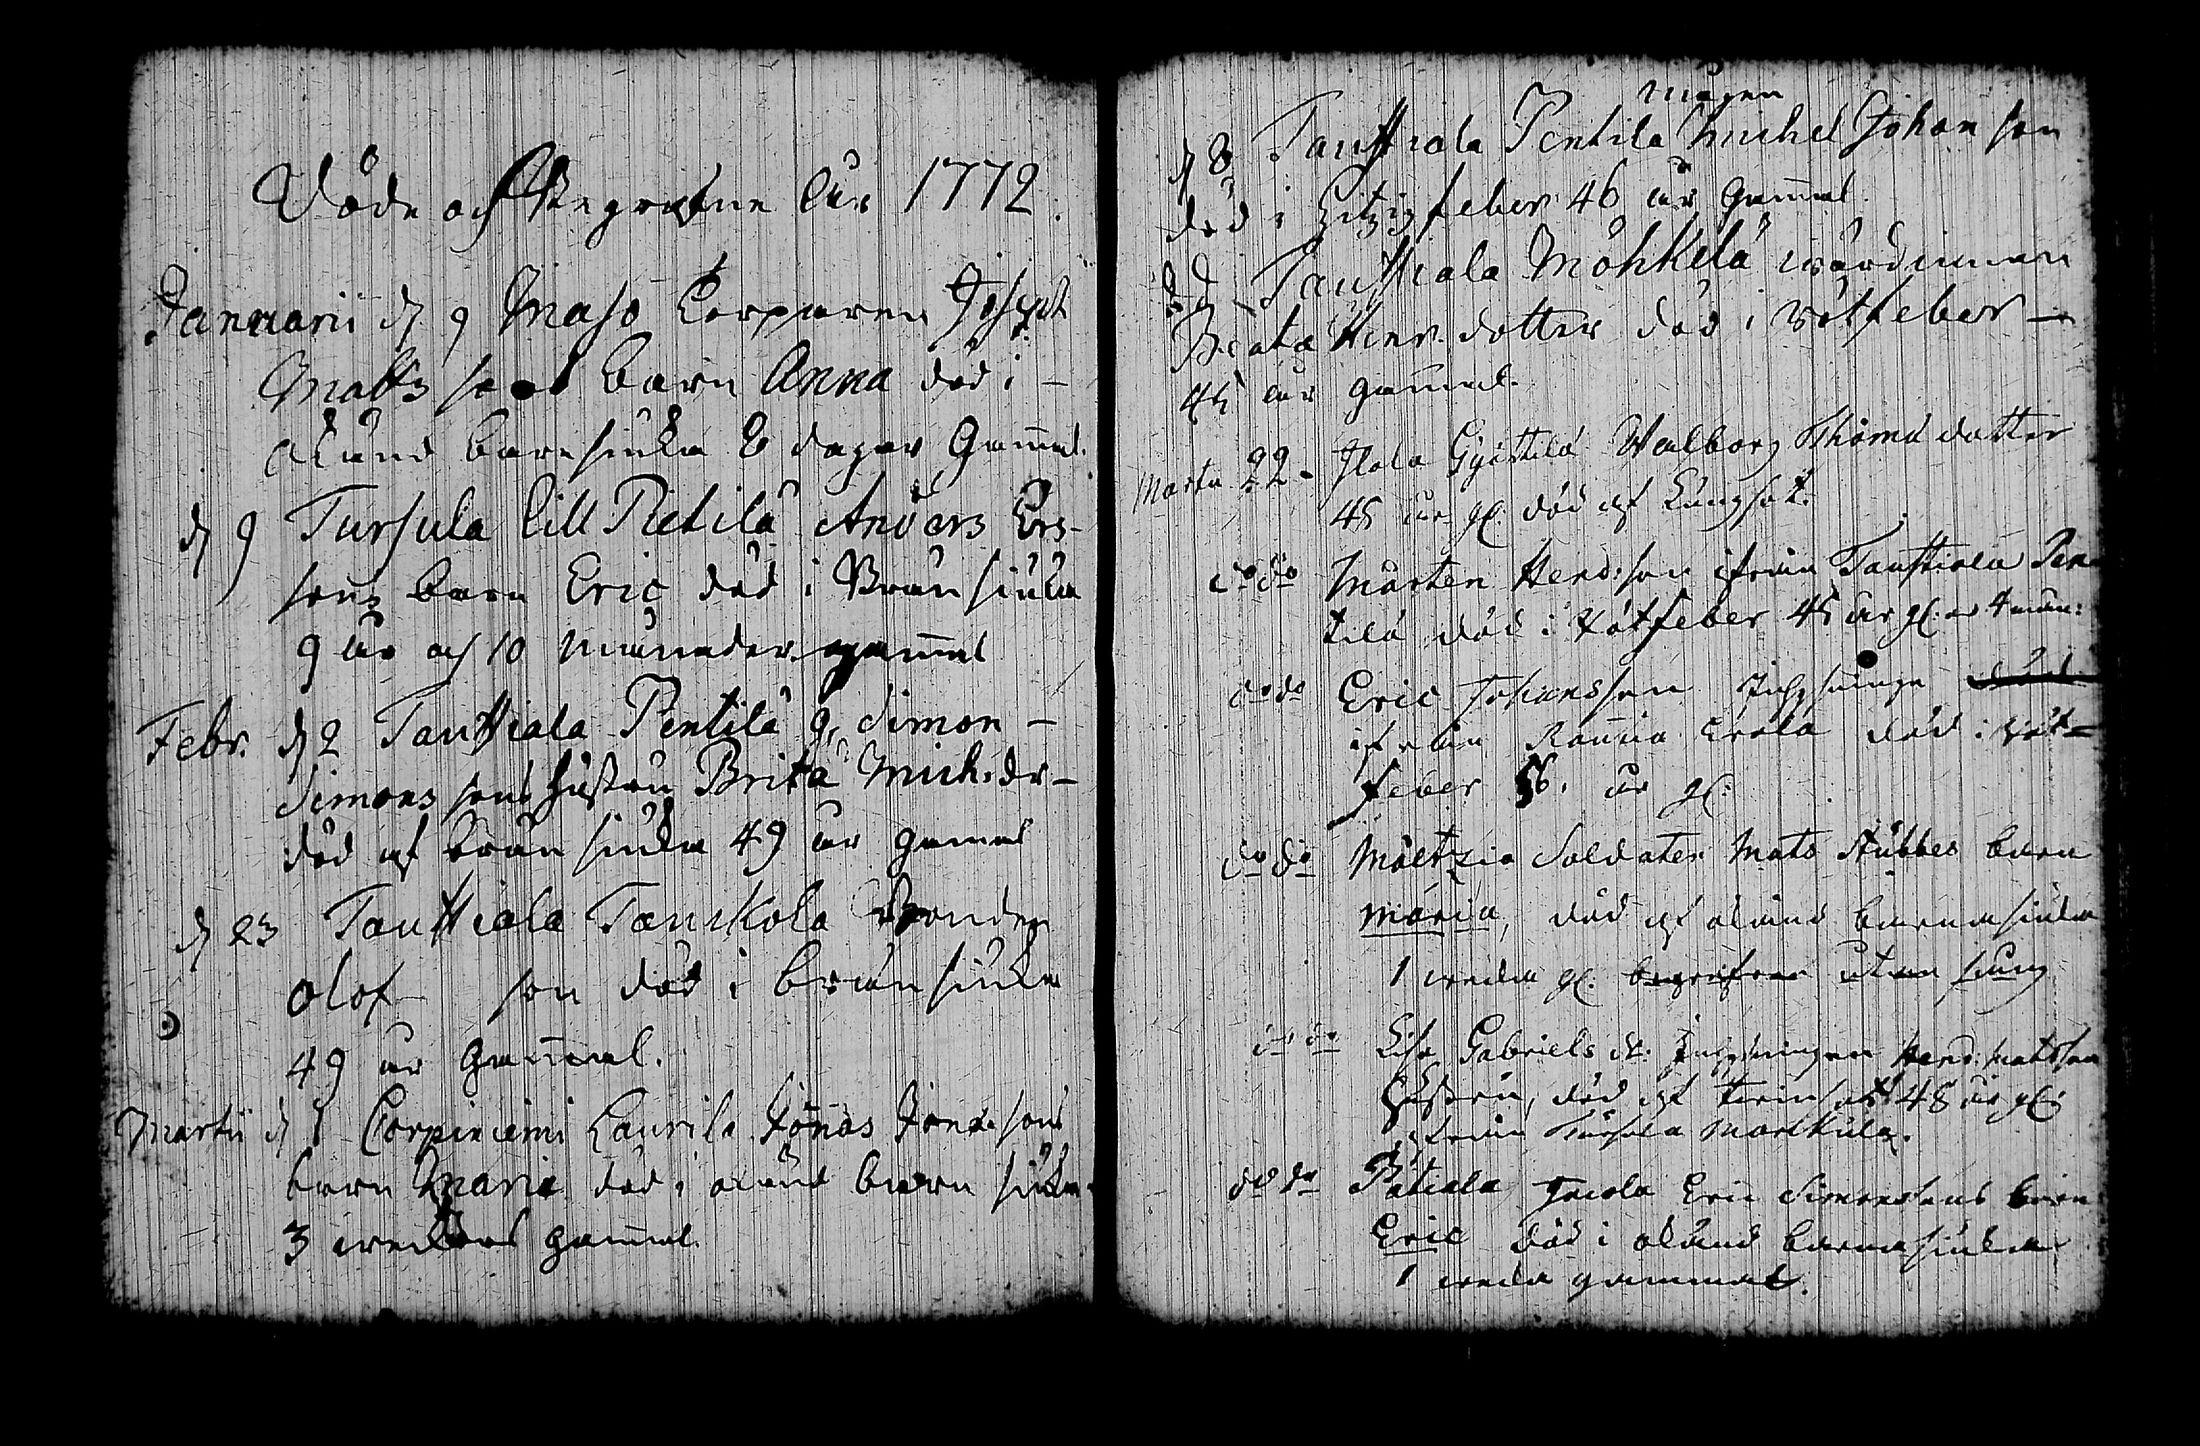 Döde och Begrafne åhr 1772.
Januarii d. 9 Maso Corporen Joseph
Matts sons barn Anna död i
okänd barnsiuka 8 dagar Gam̄al.
d 9 Tursula lill Pietilä Anders Ers-
sons barn Eric död i Brånsiuka
9 år och 10 månader gam̄al
Febr. d 2 Tauttiala Pentilä g. Simon
Simons sons hustru Brita Mich: dr
död af brånsiuka 49 år gamal
d 23 Tauttiala Tanskola Bonden
Olof son död i brånsiuka
49 år Gam̄al.
Martii d 1 Corpiniemi Laurila Jonas Jonæ sons
barn Maria död i okänd barnsiuka
3 weckors gam̄al.
mågen
d 8 Tauttiala Pentilä Michel Johan son
död i hitzig feber 46 år Gam̄al.
Tauttiala Möhkelä wärdinnan
Beata Henr. dotter död i Rötfeber
45 år gam̄al.
Martii 22. Ilola Walborg Thoma dotter
45 år gl. död af Lungsot.
do do Mårten Hend: son ifrån Tauttiala Pen-
tilä död i Rötfeber 45 år gl. och 4 mån:
do do Eric Johansson Inhysinge
ifrån Erola död i röt-
feber 56. år gl.
do do Soldaten Mats Stubbes barn
Maria, död af okänd barnasiuka
1 wecka gl. begrafven utan sång
do do Lisa Gabriels dr. Inhysingen Hend: Matsson
Hustru, död af twinsot 48 år gl:
ifrån Tursula Markula.
do do Eric Simonsons barn
Eric död i okänd barnasiuka
1 wecka gammal.